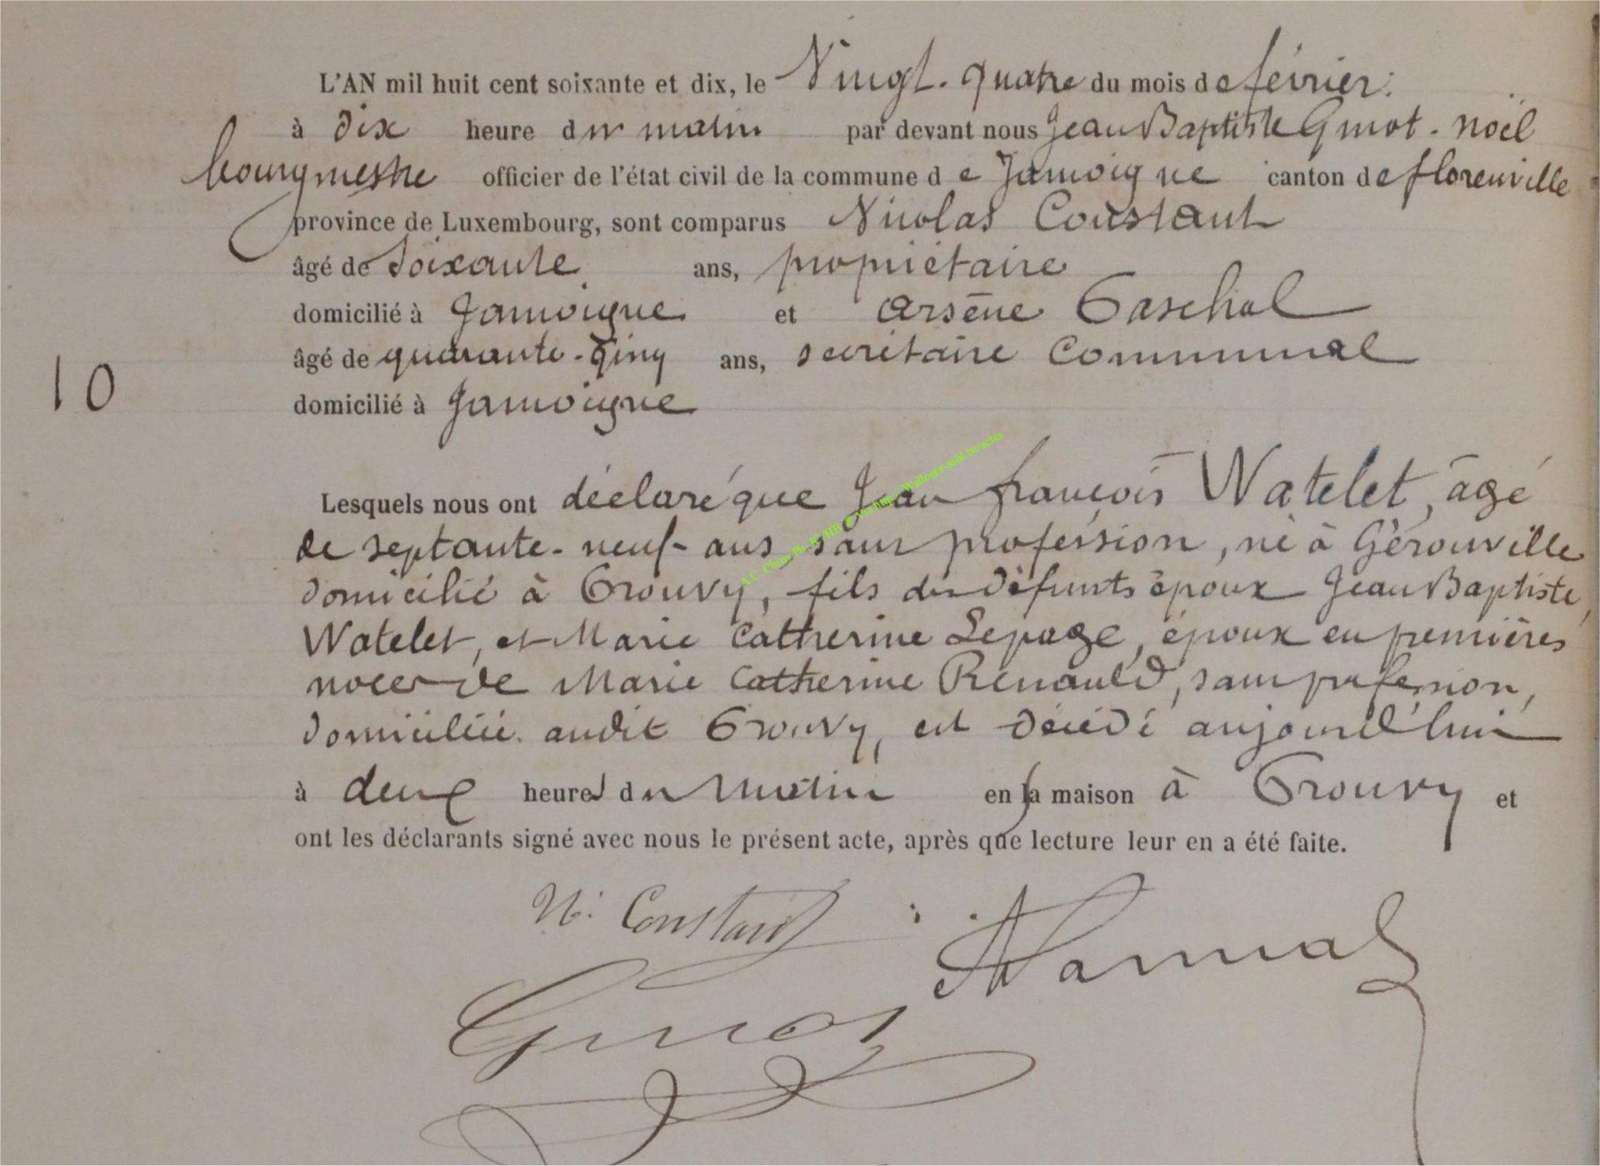 L'AN mil huit cent soixante et dix, le Vingt-quatre du mois de février
à dix heure du matin par devant nous Jean Baptiste Guiot-Noël
bourgmestre officier de l'état civil de la commune de Jamoigne canton de florenville
province de Luxembourg, sont comparus Nicolas Constant
âgé de soixante ans, propriétaire
domicilié à Jamoigne et Arsène
âgé de quarante-cinq ans, secrétaire communal
10
domicilié à Jamoigne
Lesquels nous ont déclaré que Jean françois Watelet, âgé
de septante-neuf ans sans profession, né à Gérouville
domicilié à Prouvy, fils des défunts époux Jean Baptiste
Watelet, et Marie Catherine Lepage, époux en premières
noces de Marie Catherine Renauld, sans profession,
domiciliée audit Prouvy, est décédé aujourd'hui
à deux heures du matin en sa maison à Prouvy et
ont les déclarants signé avec nous le présent acte, après que lecture leur en a été faite.
N. Constant
Guiot